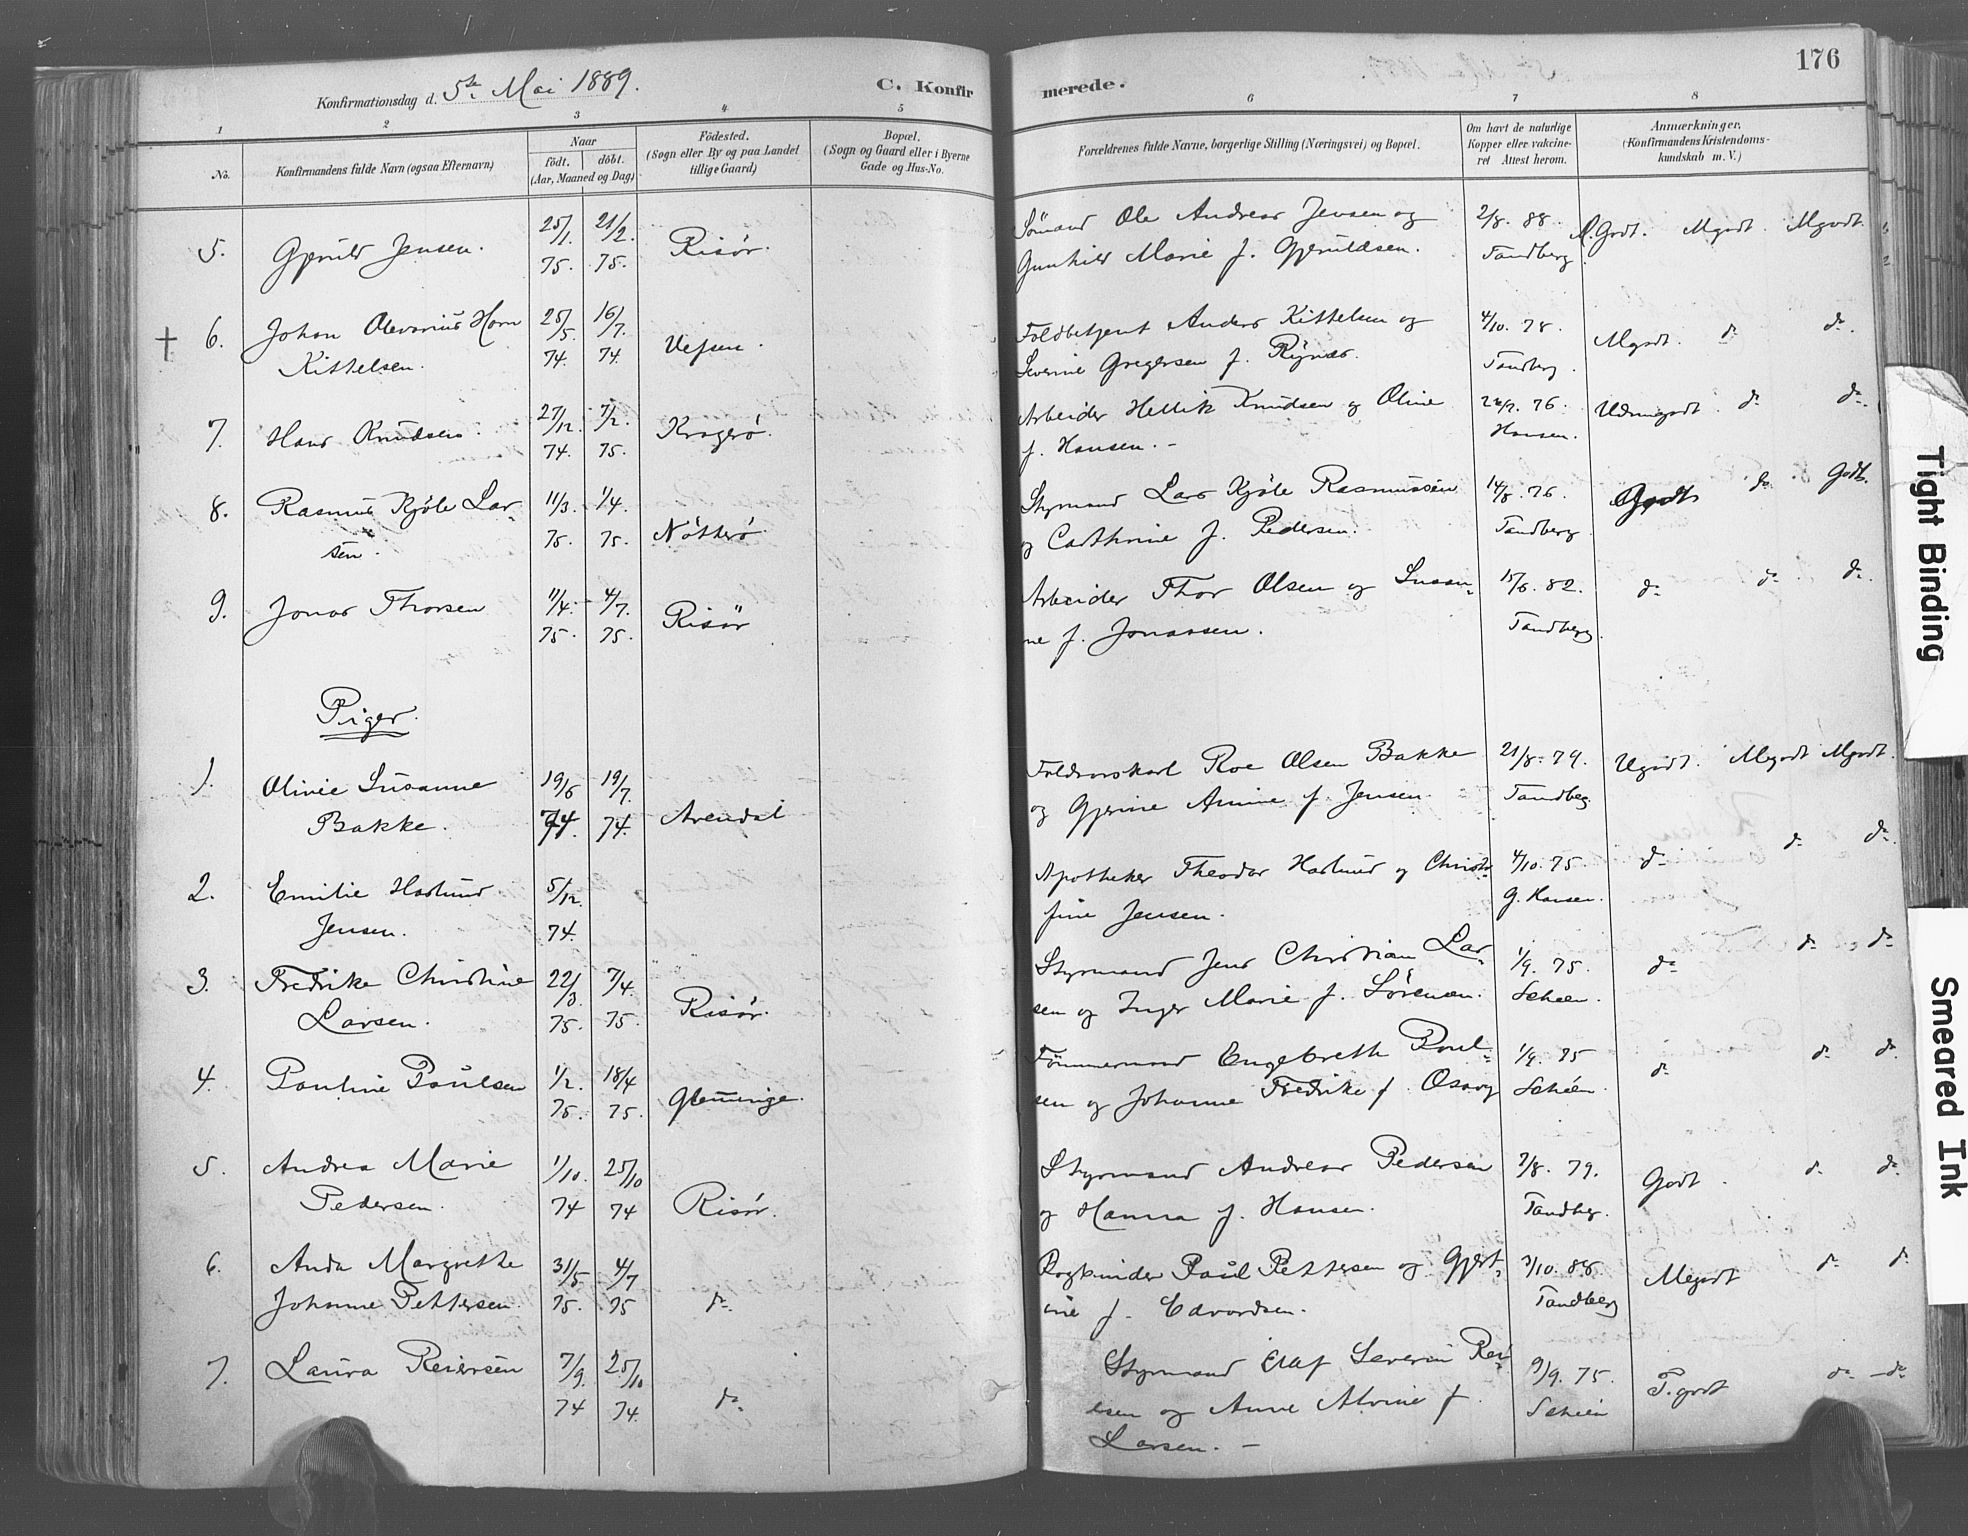 176
Konfirmationsdag d. 5te Mai 1889.
C. Konfirmerede.
1 2 3 4 5 6 7 8
No.
Konfirmandens fulde Navn (ogsaa Efternavn)
Naar
født. døbt.
(Aar, Maaned og Dag)
Fødested.
(Sogn eller By og paa Landet
tillige Gaard)
Bopæl.
(Sogn og Gaard eller i Byerne
Gade og Hus-No.
Forældrenes fulde Navne, borgerlige Stilling (Næringsvei) og Bopæl.
Om havt de naturlige
Kopper eller vakcine-
ret Attest herom.
Anmærkninger.
(Konfirmandens Kristendoms-
kundskab m. V.)
5. Gjeruld Jensen. 25/1. 75. 21/2. 75. Risør.
Sömand Ole Andreas Jensen og
Gunhild Marie f. Gjeruldsen.
2/8. 88. Tandberg
M. Godt. Mgodt. Mgodt.
† 6. Johan Olevarius Horn
Kittelsen. 25/5. 74. 16/7. 74 Vefsen.
Toldbetjent Anders Kittelsen og
Severine Gregersen f. Rynas.
4/10. 78. Tandberg.
Mgodt. do do.
7. Hans Knudsen. 27/12. 74. 7/2. 75. Kragerø.
Arbeider Hellik Knudsen og Oline
f. Hansen. -
76. Hansen.
Udmgodt. do do
8. Rasmus Kjöle Lar-
sen. 11/3. 75. 1/4. 75. Nötterö
Styrmand Lars Kjöle Rasmussen
og Cathrine f. Pedersen.
14/8. 76. Tandberg
Godt do Godt.
9. Jonas Thorsen 11/4. 75. 4/7. 75. Risör
Arbeider Thor Olsen og Susan-
ne f. Jonassen.
15/6. 82. Tandberg.
do do do.
Piger.
1. Olivie Susanne
Bakke. 19/6 74. 19/7. 74. Arendal
Roe Olsen Bakke
og Gjerine Annie f. Jensen.
21/8. 79. Tandbeg.
Ugodt. Megodt Mgodt.
2. Emilie Haslund
Jensen. 5/12. 74.
Apotheker Theodor Haslund og Christo-
fine Jensen.
4/10. 75 G. Hansen.
do do do
3. Fredrike Christine
Larsen. 22/3. 75. 7/4. 75. Risør.
Styrmand Jens Christian Lar-
sen og Inger Marie f. Sörensen.
1/9. 75. Schëen.
do do do
4. Pauline Paulsen 1/2. 75. 18/4 75. Glemminge.
Tömmermand Engebreth Poul-
sen og Johanne Fredrike f.
1/9. 75 Schëen.
do do do
5. Andrea Marie
Pedersen. 1/10. 74 25/10 74 Risør.
Styrmand Andreas Pedersen
og Hanna f. Hansen.
7/8. 79. Tandberg.
Godt. do do
6. Anda Margrethe
Johanne Pettersen. 31/5. 75. 4/7 75 do
Bogbinder Paul Pettersen og Gjert-
ine f. Edvardsen.
3/10. 88. Tandberg
Megodt do do
7. Laura Reiersen 7/9. 74 25/10 74. do
Styrmand Olaf Severin Rei-
ersen og Anne Alvine f.
Larsen. -
9/9. 75. Schëen
T. godt do - do
Tight Binding
Smeared Ink